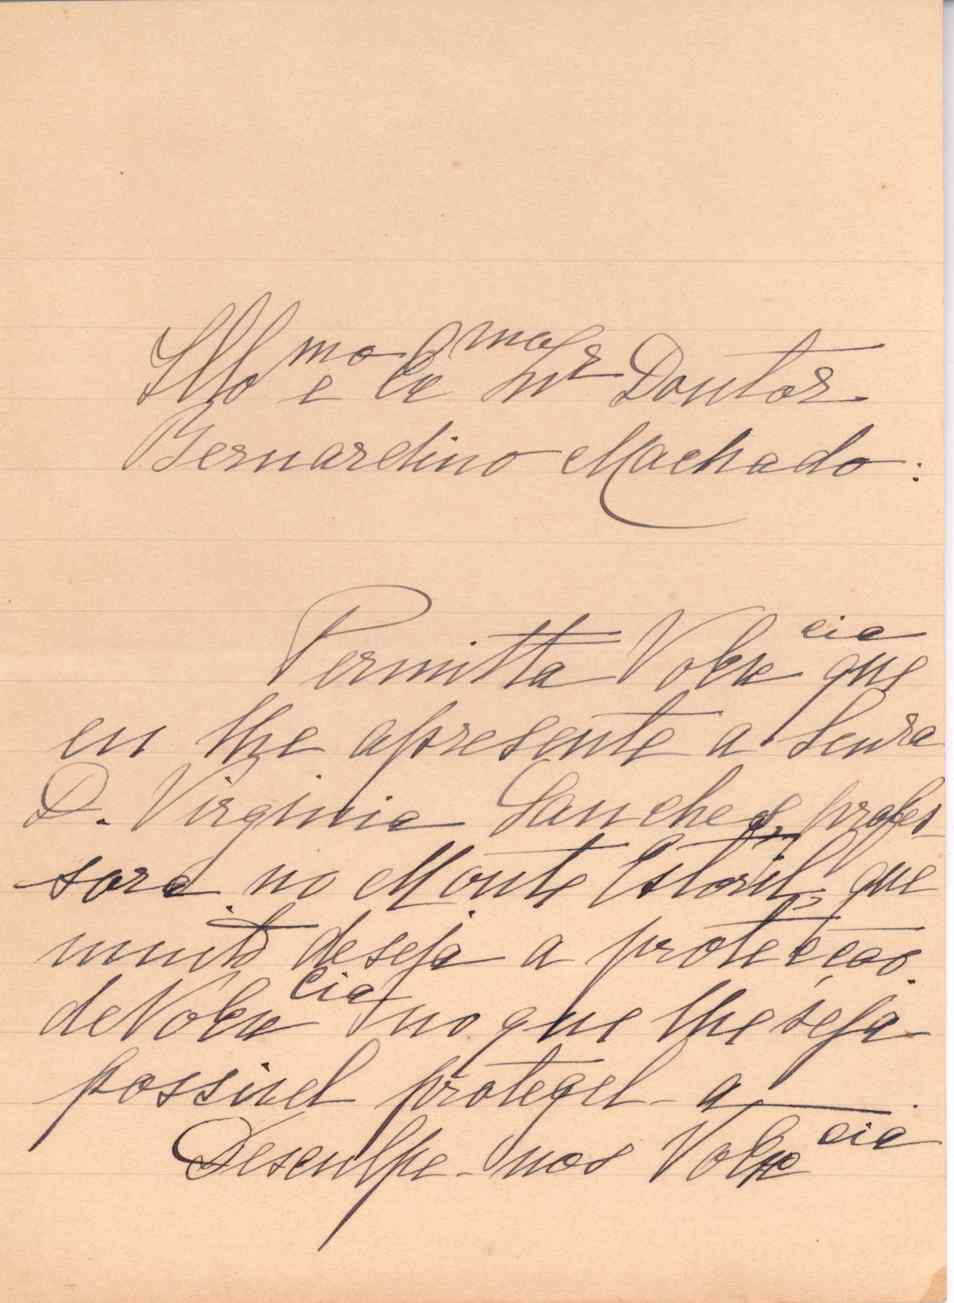 Illmo e Exmo Snr Doutor
Bernardino Machado:
Permitta V Excia que
eu lhe apresente a Senra
D. Virginia Sanches, profes
sora no Monte Estoril, que
muito deseja a protecção
de V Excia no que lhe seja
possivel protegel-a
Desculpe-nos V Excia